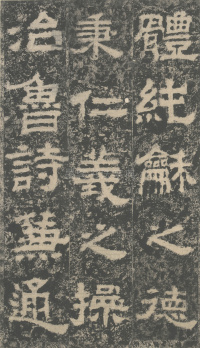 體純龢之德
秉仁義之操
治魯詩兼通